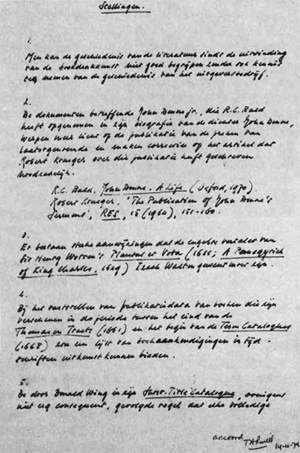 Stellingen.
1.
Men kan de geschiedenis van de literatuur sinds de uitvinding
van de boekdrukkunst niet goed begrijpen zonder ook kennis
te nemen van de geschiedenis van het uitgeversbedrijf.
2.
De dokumenten betreffende John Donne jr., die R.C. Bald
heeft opgenomen in zijn biografie van de dichter John Donne,
werpen meer licht op de publikatie van de preken van
laatstgenoemde en maken correctie op het artikel dat
Robert Krueger over die publikatie heeft geschreven
noodzakelijk.
R.C. Bald, John Donne. A Life (Oxford, 1970).
Robert Krueger, 'The Publication of John Donne's
Sermons', RES, 15 (1964), 151-160.
3.
Er bestaan sterke aanwijzingen dat de engelse vertaler van
Sir Henry Wotton's Plausus et Vota (1633; A Panegyrick
of King Charles, 1649) Izaak Walton geweest moet zijn.
4.
Bij het vaststellen van publikatiedata van boeken die zijn
verschenen in de periode tussen het eind van de
Thomason Tracts (1661) en het begin van de Term Catalogues
(1668) kan een lijst van boekaankondigingen in tijd-
schriften uitkomst kunnen bieden.
5.
De door Donald Wing in zijn Short-Title Catalogue, overigens
niet erg consequent, gevolgde regel dat elke volledige
accoord